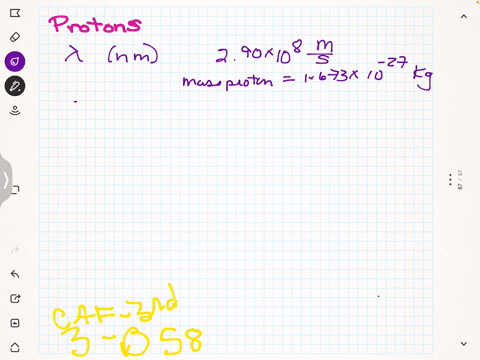 Protons
λ (nm) 2.90×10⁸ m/s
mass proton = 1.673×10⁻²⁷ kg
CAF-3rd
3-058
87 / 87